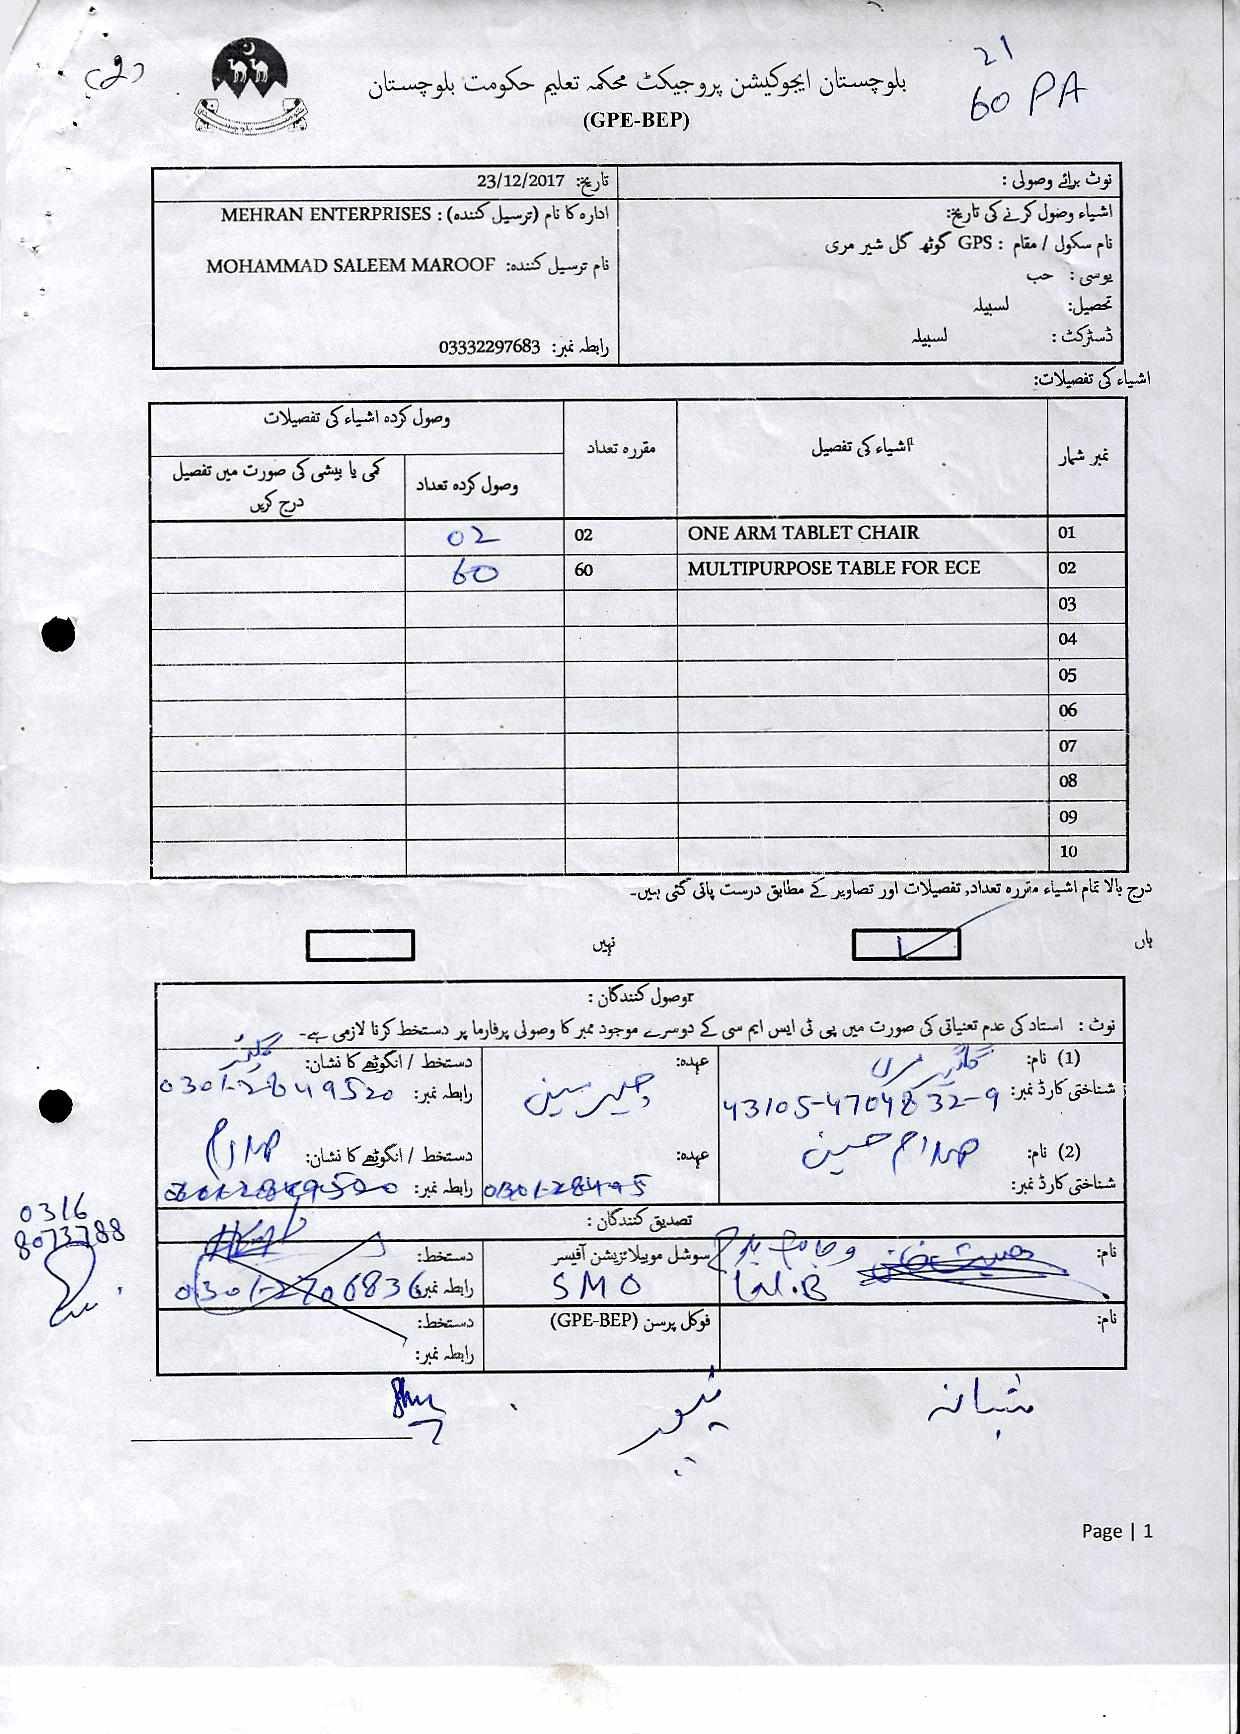 (2)
21
60 PA
بلوچستان ایجوکیشن پروجیکٹ محکمہ تعلیم حکومت بلوچستان
(GPE-BEP)
نوٹ برائے وصولی :
تاریخ: 23/12/2017
اشیاء وصول کرنے کی تاریخ:
ادارہ کا نام (ترسیل کنندہ) : MEHRAN ENTERPRISES
نام سکول / مقام : GPS گوٹھ گل شیر مری
نام ترسیل کنندہ: MOHAMMAD SALEEM MAROOF
یوسی : حب
تحصیل: لسبیلہ
ڈسٹرکٹ : لسبیلہ
رابطہ نمبر: 03332297683
اشیاء کی تفصیلات:
نمبر شمار اشیاء کی تفصیل مقررہ تعداد وصول کردہ اشیاء کی تفصیلات
وصول کردہ تعداد کمی یا بیشی کی صورت میں تفصیل درج کریں
01 ONE ARM TABLET CHAIR 02 02
02 MULTIPURPOSE TABLE FOR ECE 60 60
03
04
05
06
07
08
09
10
درج بالا تمام اشیاء مقررہ تعداد, تفصیلات اور تصاویر کے مطابق درست پائی گئی ہیں۔
ہاں نہیں
وصول کنندگان :
نوٹ : استاد کی عدم تعیناتی کی صورت میں پی ٹی ایس ایم سی کے دوسرے موجود ممبر کا وصولی پرفارما پر دستخط کرنا لازمی ہے۔
(1) نام: عہدہ: چیرمین دستخط / انگوٹھے کا نشان:
شناختی کارڈ نمبر: 43105-4704832-9 رابطہ نمبر: 0301-2849520
(2) نام: صدام حسین عہدہ: دستخط / انگوٹھے کا نشان: صدام
شناختی کارڈ نمبر: رابطہ نمبر:
0316
8073788
تصدیق کنندگان :
نام: سوشل موبیلائزیشن آفیسر دستخط:
SMO رابطہ نمبر: 0301-2706836
نام: فوکل پرسن (GPE-BEP) دستخط:
رابطہ نمبر:
شبانہ
Page | 1